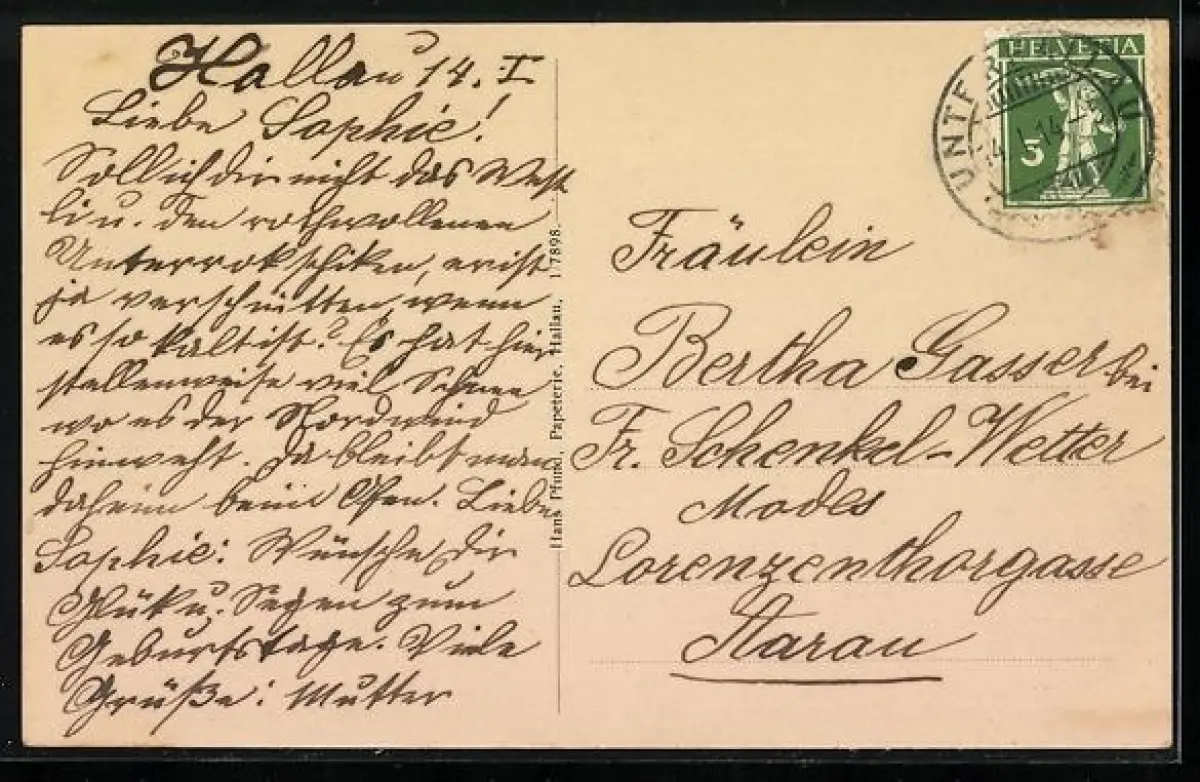 Hallau 14. I
Liebe Sophie!
Soll ich dir nicht das West
li u. den rothwollenen
Unterrok schiken, er ist
ja verschnitten, wenn
es so kalt ist? Es hat hier
stellenweise viel Schnee
wo es der Nordwind
hinweht. Da bleibt man
daheim beim Ofen. Liebe
Sophie: Wünsche dir
Glük u. Segen zum
Geburtstage. Viele
Grüße: Mutter
Hans Pfund, Papeterie, Hallau. 17898.
HELVETIA
5
UNTERHALLAU
Fräulein
Bertha Gasser bei
Fr. Schenkel-Wetter
Modes
Lorenzenthorgasse
Aarau